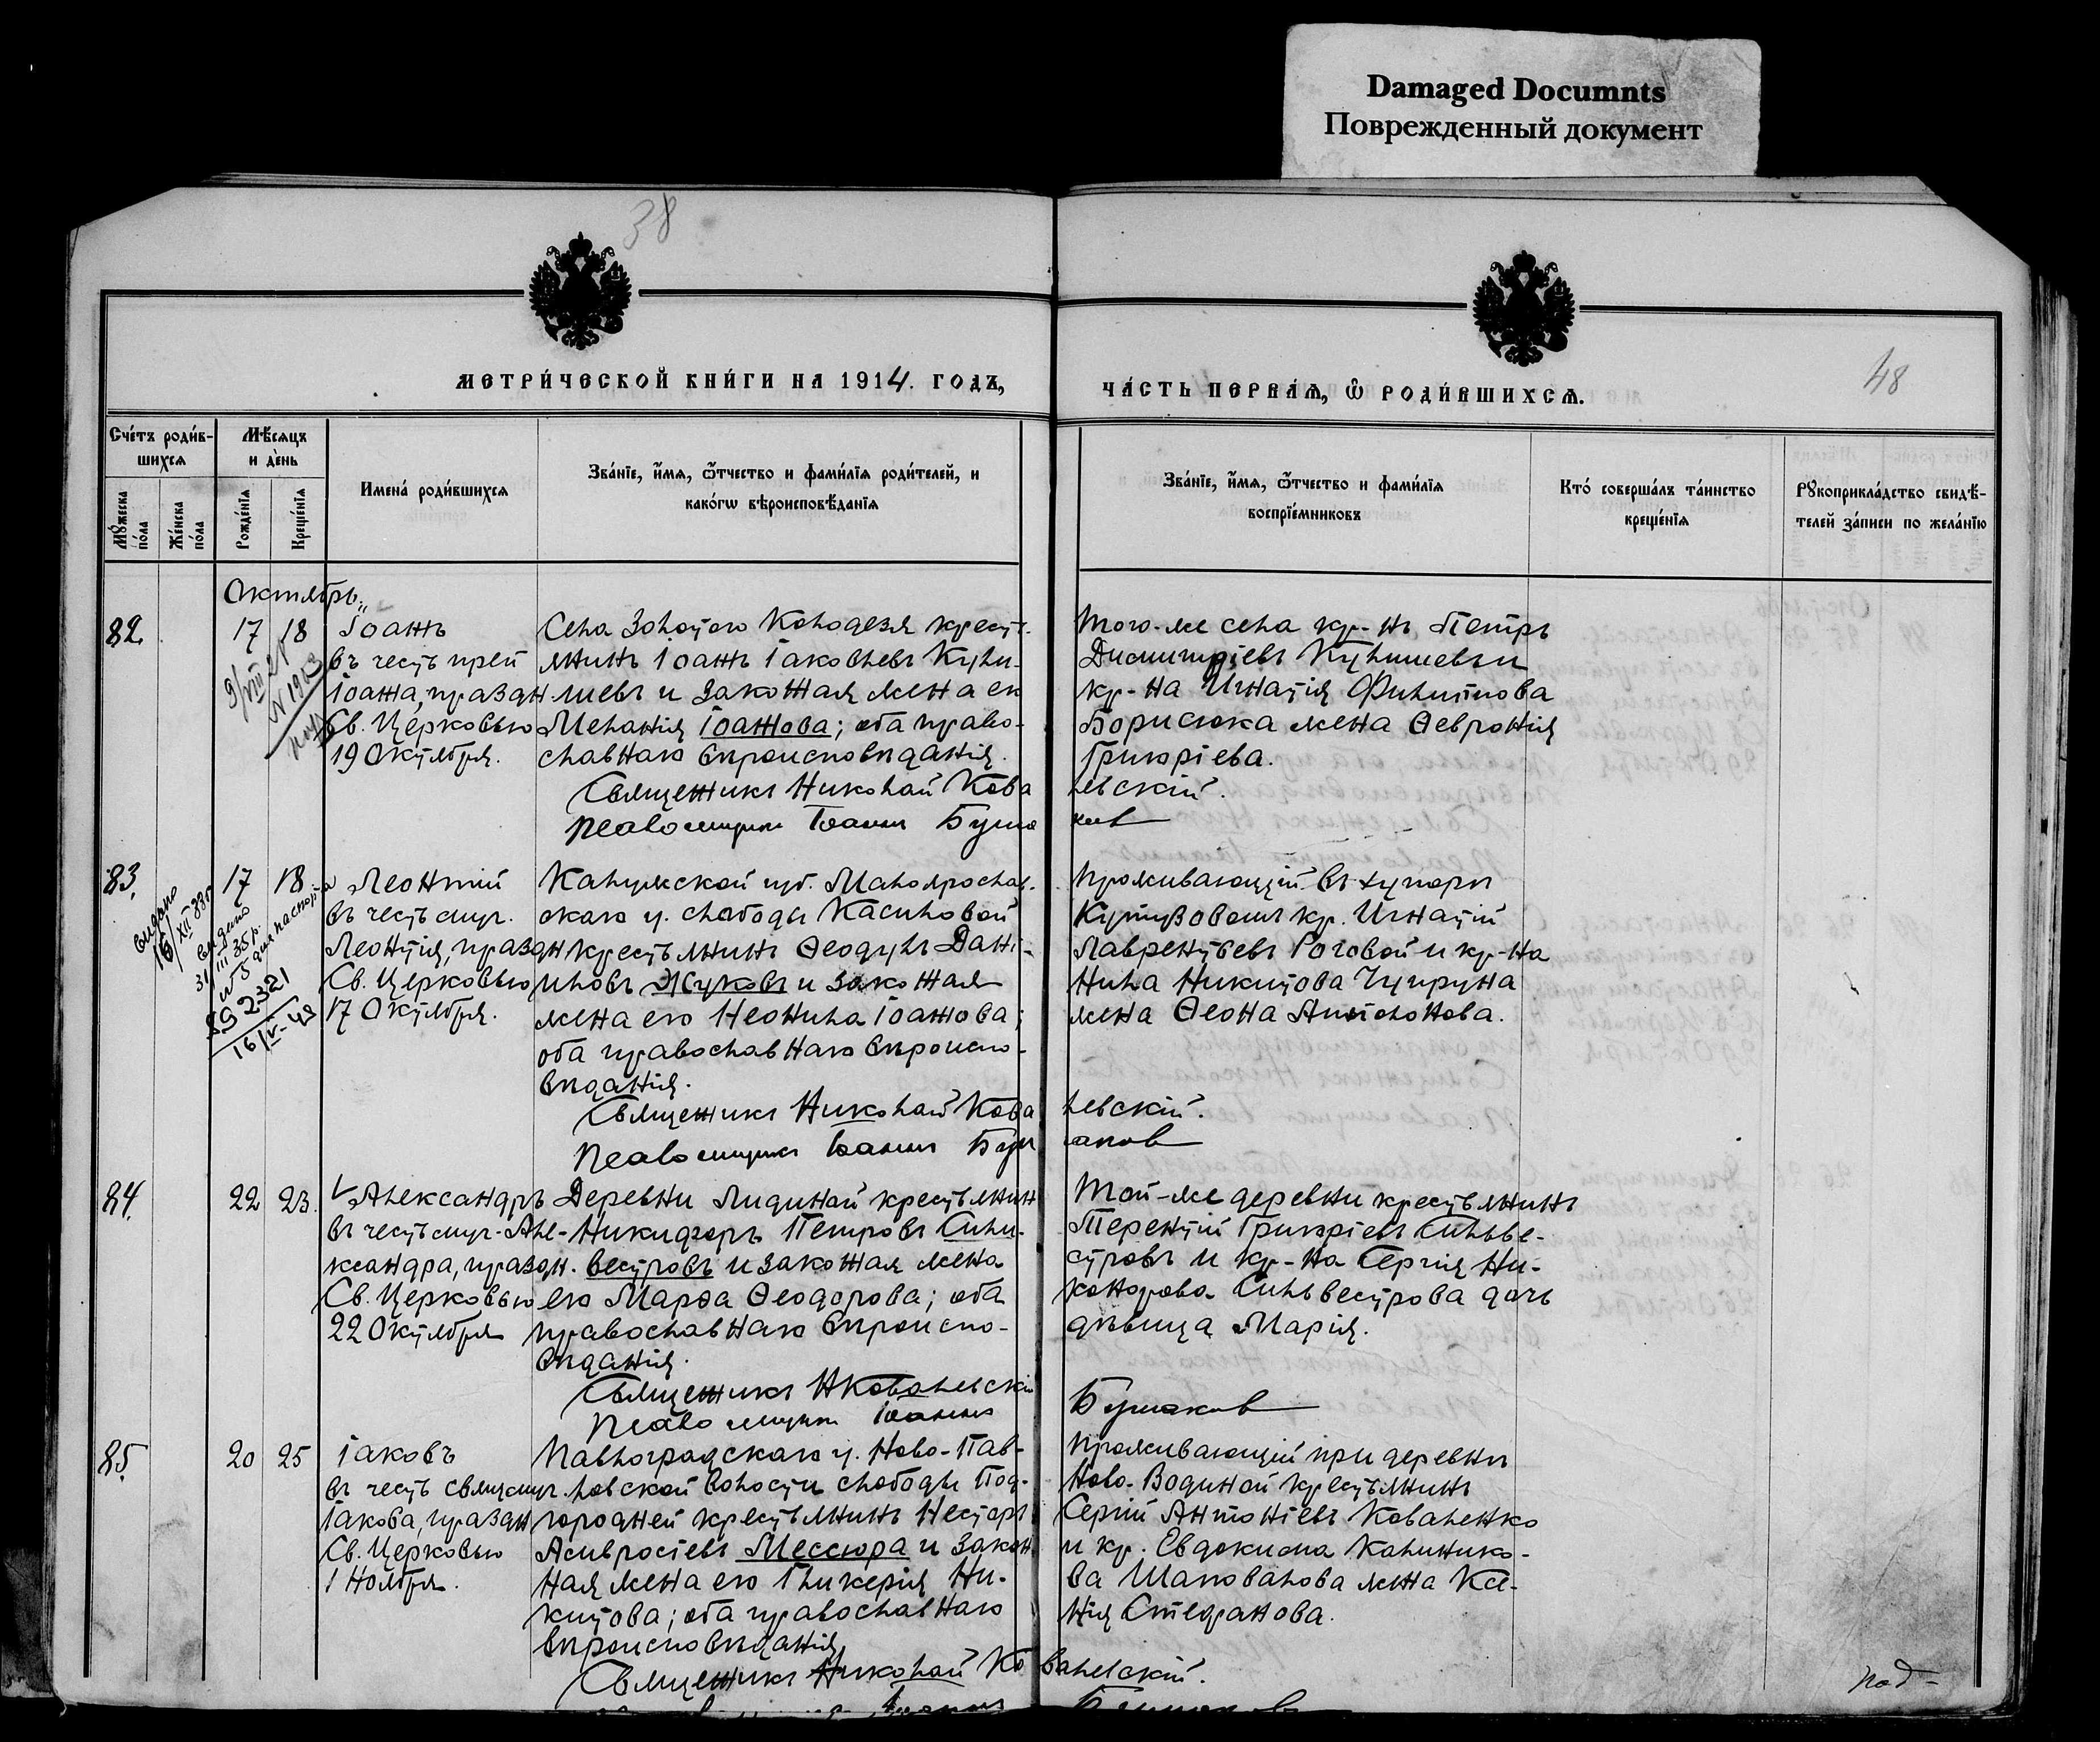 Damaged Documnts
Поврежденный документ
38
МЕТРИ́ЧЕСКОЙ КНИ́ГИ НА 1914. ГОДЪ,
ЧА́СТЬ ПЕРВА́Я, Ѿ РОДИ́ВШИХСЯ.
48
Сче́тъ роди́в-
шихся
Мѣсяцъ
и де́нь
Мꙋ́жеска
по́ла
Же́нска
по́ла
Рожде́нїя
Креще́нїя
Имена́ роди́вшихся
Зва́нїе, и́мя, ѻ҆́тчество и фами́лїя роди́телей, и
како́гѡ вѣроисповѣ́данїя
Зва́нїе, и́мя, ѻ҆́тчество и фами́лїя
воспрїе́мниковъ
Кто́ соверша́лъ та́инство
креще́нїя
Рꙋкоприкла́дство свидѣ́-
телей за́писи по жела́нїю
Октябрь
82.
17 18
Іоаннъ
въ честь преп
Іоанна, праздн
Св. Церковью
19 Октября.
Села Золотого Колодезя кресть-
янинъ Іоаннъ Іаковлевъ Кули-
шевъ и законная жена его
Меланія Іоаннова; оба право-
славнаго вѣроисповѣданія.
Того-же села кр-нъ Петръ
Димитріевъ Кулишевъ и
кр-на Игнатія Филиппова
Борисюка жена Ѳевронія
Григоріева.
Священникъ Николай Ковалевскій.
Псаломщикъ Іоаннъ Бушаков
83.
17 18
выдано
16/XII 33г
выдано
31/III 35 г.
для паспорта
2321
16/IV-49
Леонтій
въ честь муч.
Леонтія, праздн
Св. Церковью
17 Октября.
Калужской губ. Малоярослав-
скаго у. слободы Касиловой
крестьянинъ Ѳеодулъ Дані-
иловъ Жуковъ и законная
жена его Неонила Іоаннова;
оба православнаго вѣроиспо-
вѣданія.
Проживающій въ хуторѣ
Кутузовомъ кр. Игнатій
Лаврентьевъ Роговой и кр-на
Нила Никитова Чупруна
жена Ѳеона Антонова.
Священникъ Николай Ковалевскій.
Псаломщикъ Іоаннъ Бушаков
84.
22 23.
Александръ
въ честь муч. Але-
ксандра, праздн.
Св. Церковью
22 Октября
Деревни Лидиной крестьянинъ
Никифоръ Петровъ Силь-
вестровъ и законная жена
его Марѳа Ѳеодорова; оба
православнаго вѣроиспо-
вѣданія.
Той-же деревни крестьянинъ
Терентій Григоріевъ Сильве-
стровъ и кр-на Сергія Ни-
конорова Сильвестрова дочь
дѣвица Марія.
Священникъ Н Ковалевскій
Псаломщикъ Іоаннъ Бушаков
85.
20 25
Іаковъ
въ честь свящмуч.
Іакова, праздн
Св. Церковью
1 Ноября.
Павлоградскаго у. Ново-Пав-
ловской волости слободы Под-
городней крестьянинъ Несторъ
Амвросіевъ Мессюра и закон
ная жена его Гликерія Ни-
китова; оба православнаго
вѣроисповѣданія
Проживающій при деревнѣ
Ново-Водяной крестьянинъ
Сергій Антоніевъ Коваленко
и кр. Евдокима Калинико-
ва Шаповалова жена Ксе-
нія Стефанова.
Священникъ Николай Ковалевскій.
Іоаннъ Бушаковъ
под-